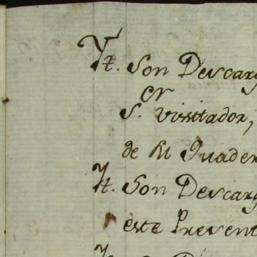 Yt. Son Descarg
Sor. Visitador,
de su Quader
Yt. Son Descarg
este Prevent